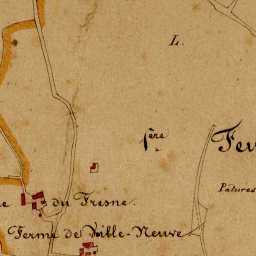 L.
1ère
Patures
du Fresne.
Ferme de Ville-Neuve